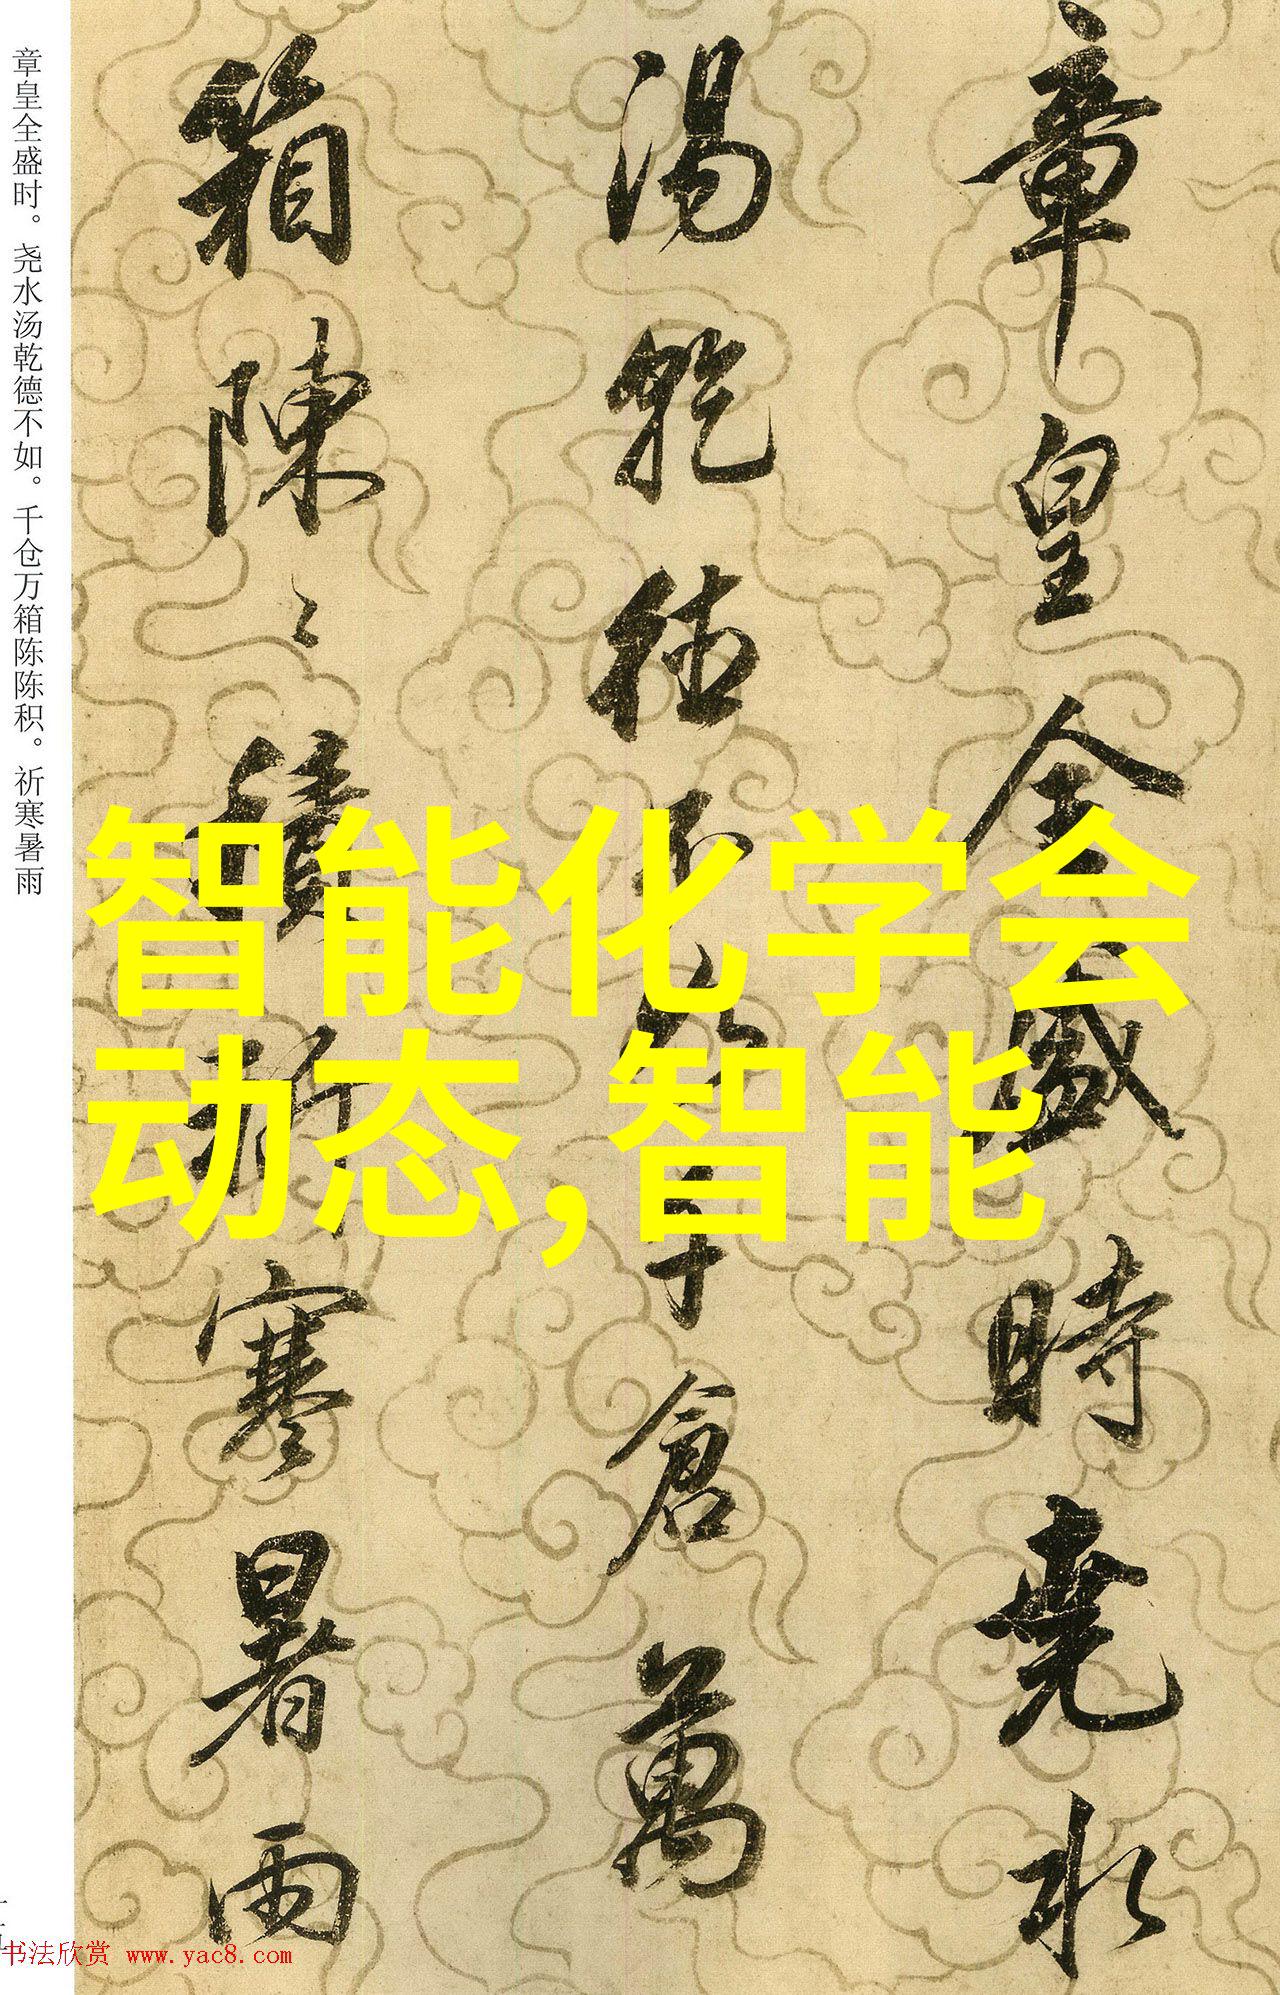 章皇全盛時堯水
湯乾德不如千倉萬
箱陳〻積祈寒暑雨
章皇全盛时。尧水汤乾德不如。千仓万箱陈陈积。祈寒暑雨
智能化学会
动态,智能
书法欣赏 www.yac8.com